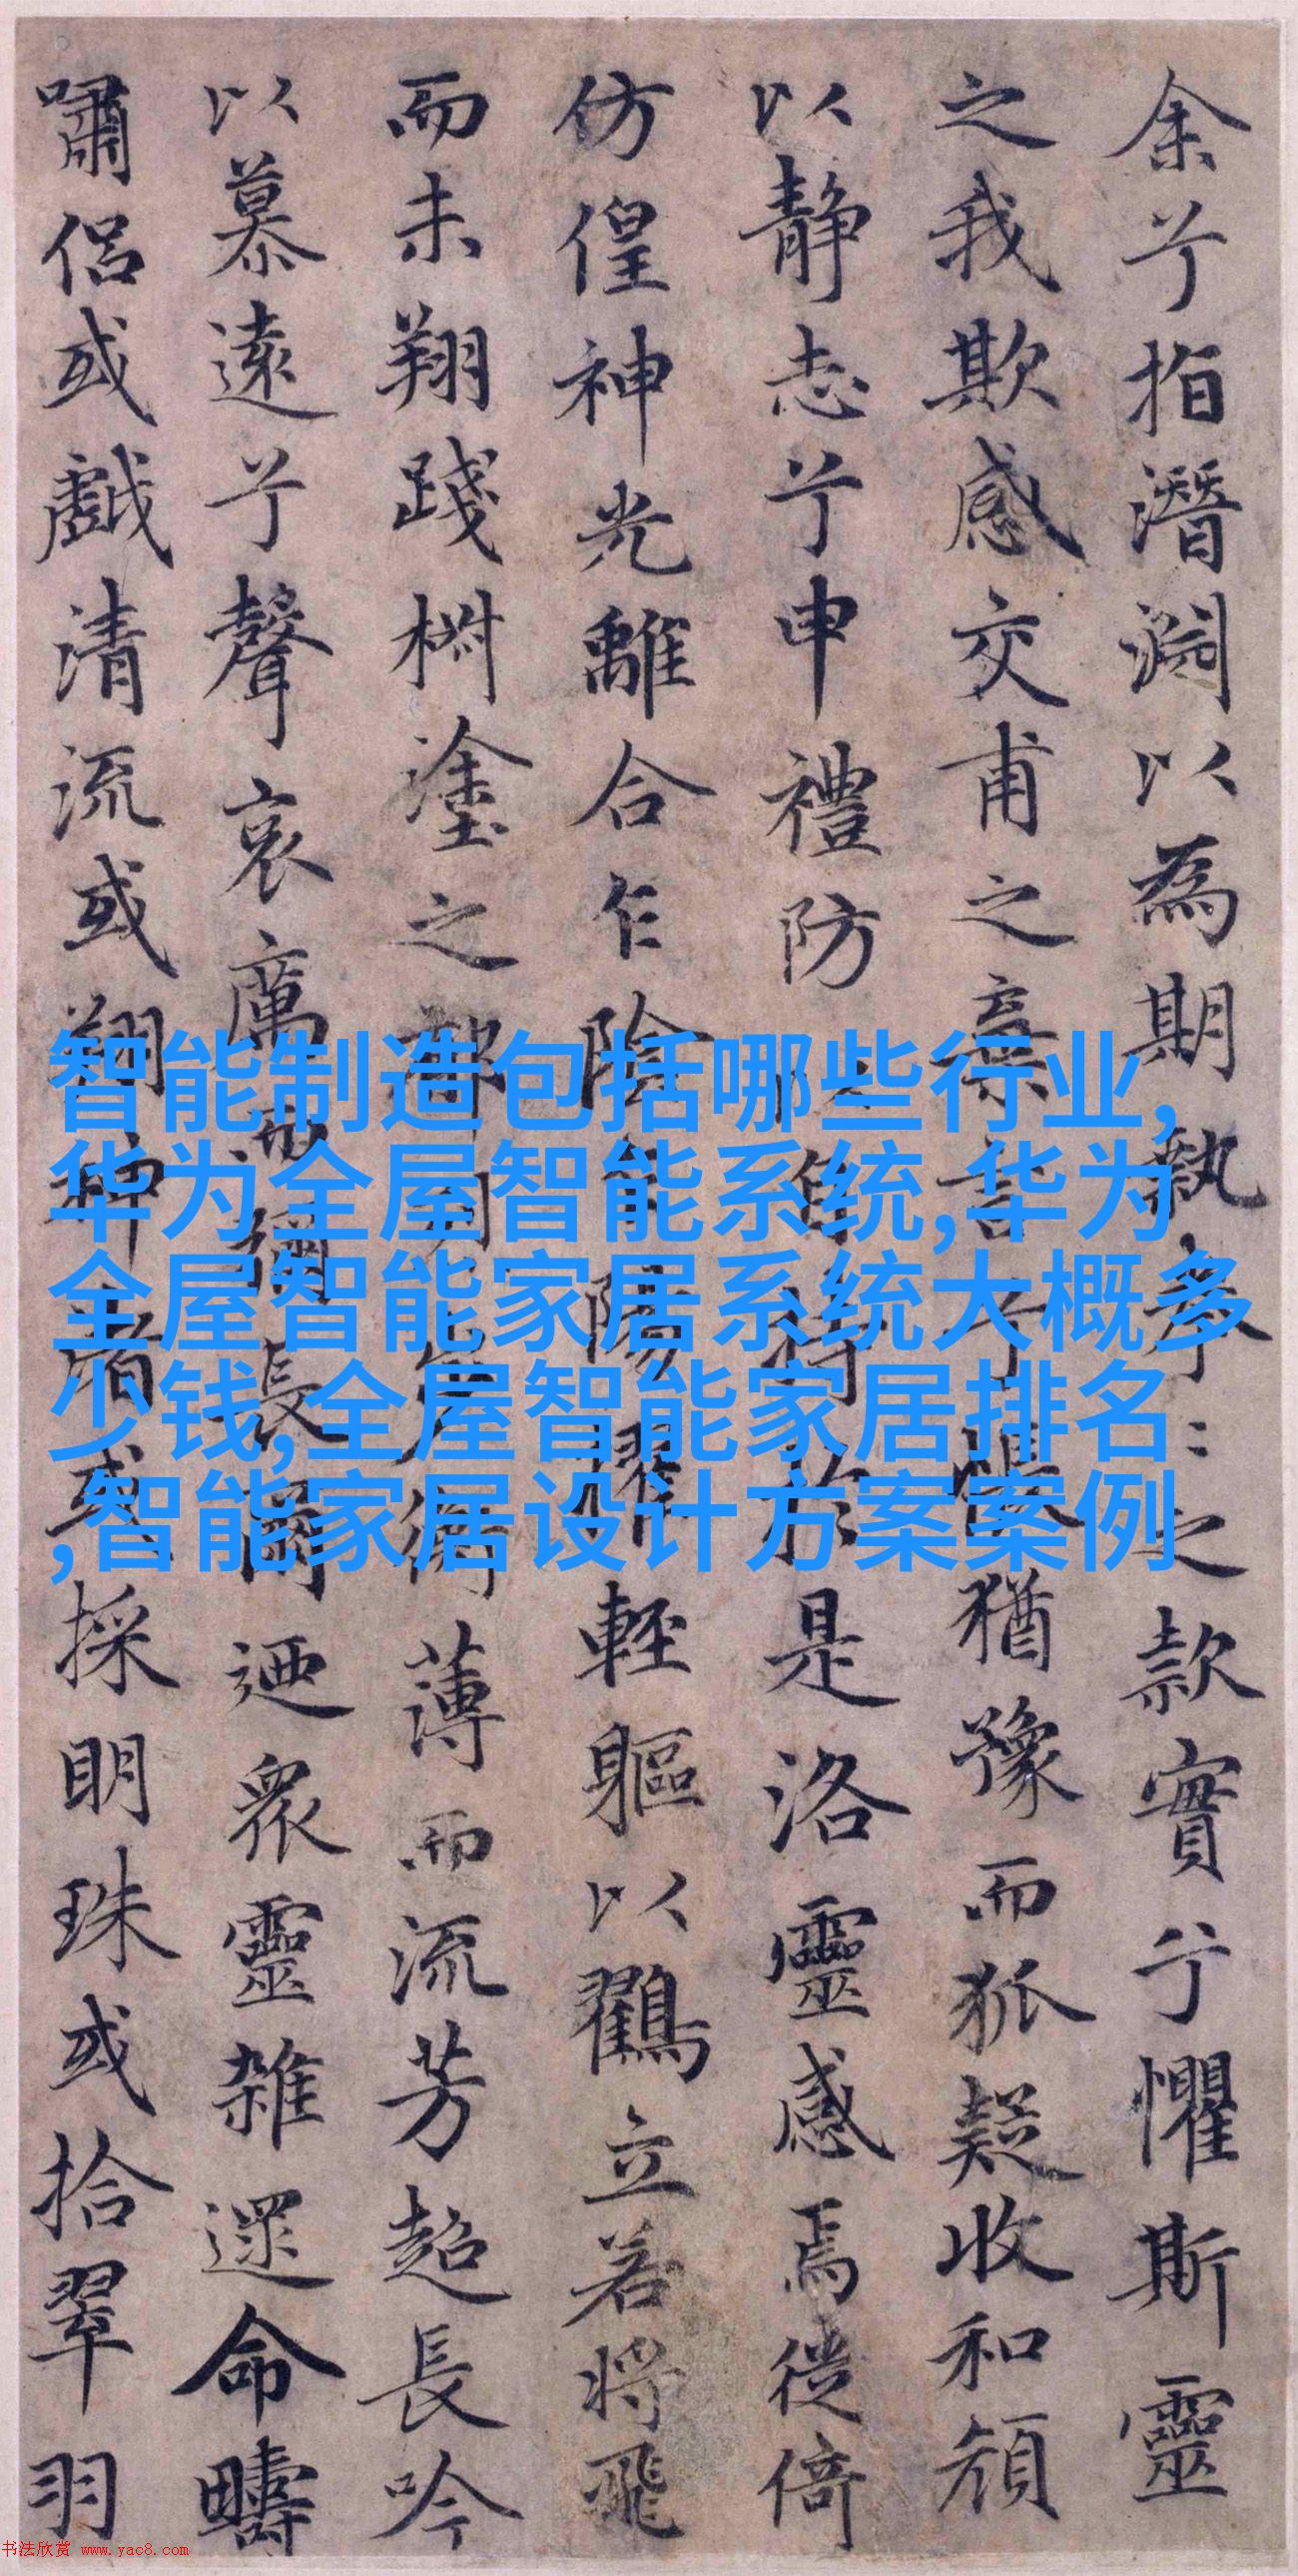 余兮指潛淵以為期執之款實兮懼斯靈
之我欺感交甫之棄言兮悵猶豫而狐疑收和顏
以靜志兮申禮防以自持於是洛靈感焉徙倚
仿偟神光離合乍陰乍陽擢輕軀以鶴立若將飛
而未翔踐椒塗之郁烈步衡薄而流芳超長吟
以慕遠兮聲哀厲而彌長爾迺衆靈雜遝命疇
嘯侶或戲清流或翔神渚或採明珠或拾翠羽
智能制造包括哪些行业,
华为全屋智能系统,华为
全屋智能家居系统大概多
少钱,全屋智能家居排名
,智能家居设计方案案例
书法欣赏 www.yac8.com